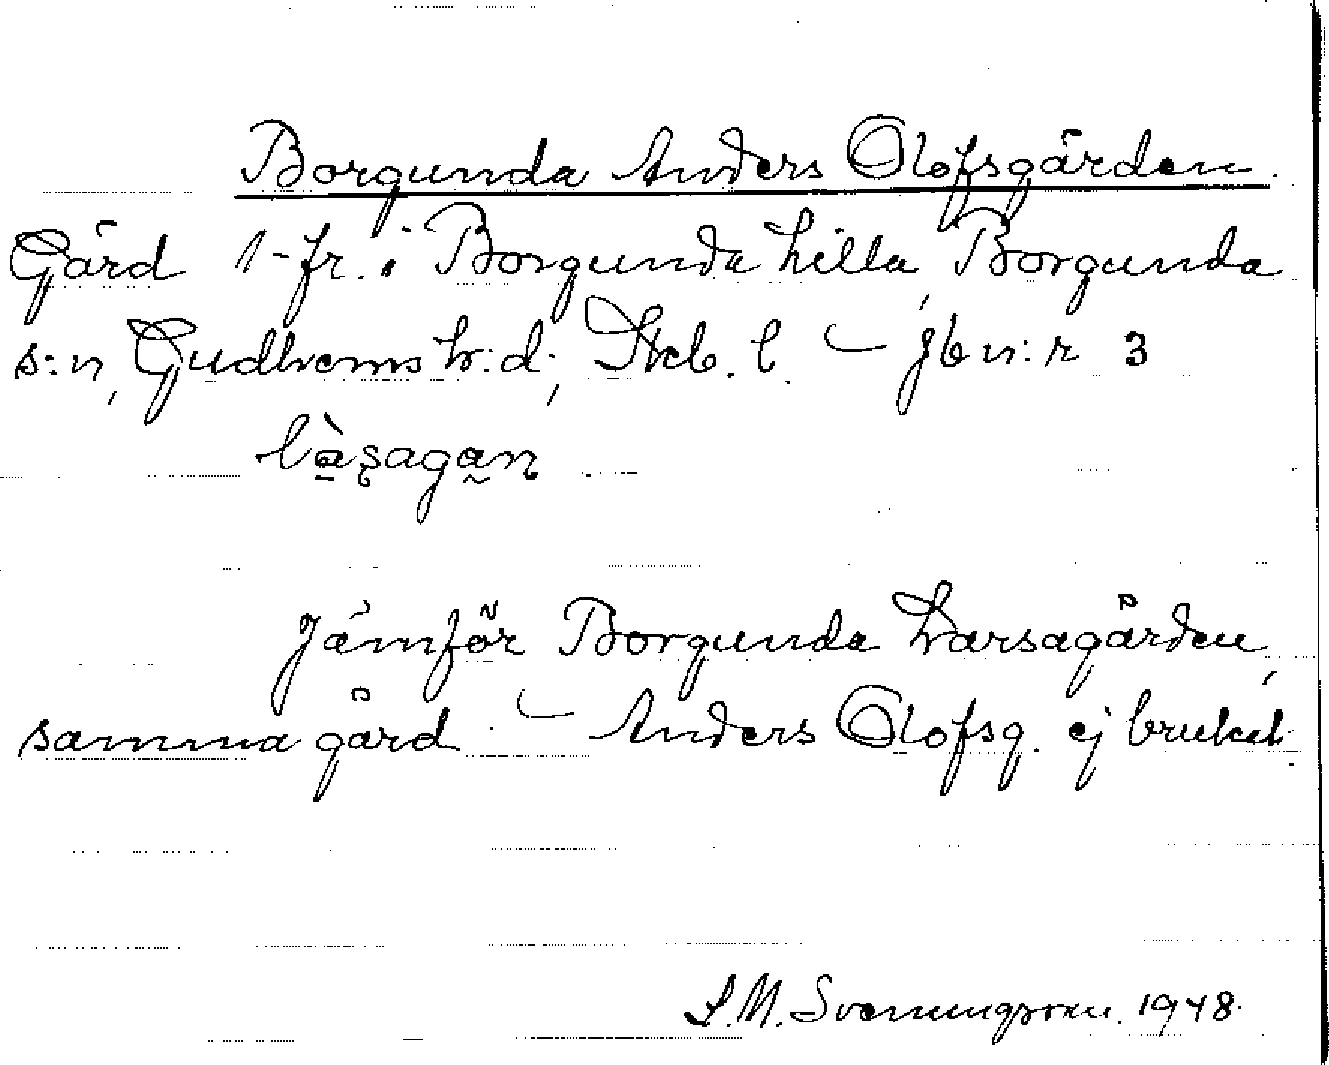 Borgunda Anders Olofsgården.
Gård 1-fr. i Borgunda Lilla, Borgunda
s:n, Gudhems h:d, Skb. l. — jb n:r 3
Jämför Borgunda Larsagården,
samma gård. — Anders Olofsg. ej brukat.
S.M. Svenungsson. 1948.